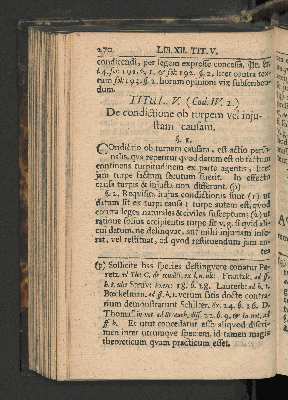 270 LIB. XII. TIT. V.
condicendi, per legem expresse concessa.
t. 4. §. 2. licet contra tex-
tum horum opinioni vix subscriben-
dum.
TITUL. V. (Cod. IV. 2.)
De condictione ob turpem vel inju-
stam causam.
§. 1.
COndictio ob turpem causam, est actio perso-
nalis, qua repetitur quod datum est ob factum
continens turpitudinem ex parte agentis, licet
jam turpe factum secutum fuerit. In effectu
causa turpis & injusta non differunt. (p)
§. 2. Requisita hujus condictionis sunt (1) ut
datum sit ex turpi causa; turpe autem est, quod
contra leges naturales & civiles susceptum; (2) ut
ratione solius accipientis turpe sit v. g. si quid ali-
cui datum, ne delinquat, aut mihi injuriam infe-
rat, vel restituat, ad quod restituendum jam an-
tea
(p) Sollicite has species distinguere conatur Pe-
retz. ad Tit. C. de condict.
h. t. 18. Lauterb. ad h. t.
Böckelman. ad ff. h. t. verum satis docte contra-
rium demonstrarunt Schilter. Ex. 24. §. 16. D.
Thomas.
ff. h. Et utut concedatur esse aliquod discri-
men inter utramque speciem, id tamen magis
theoreticum quam practicum esset.